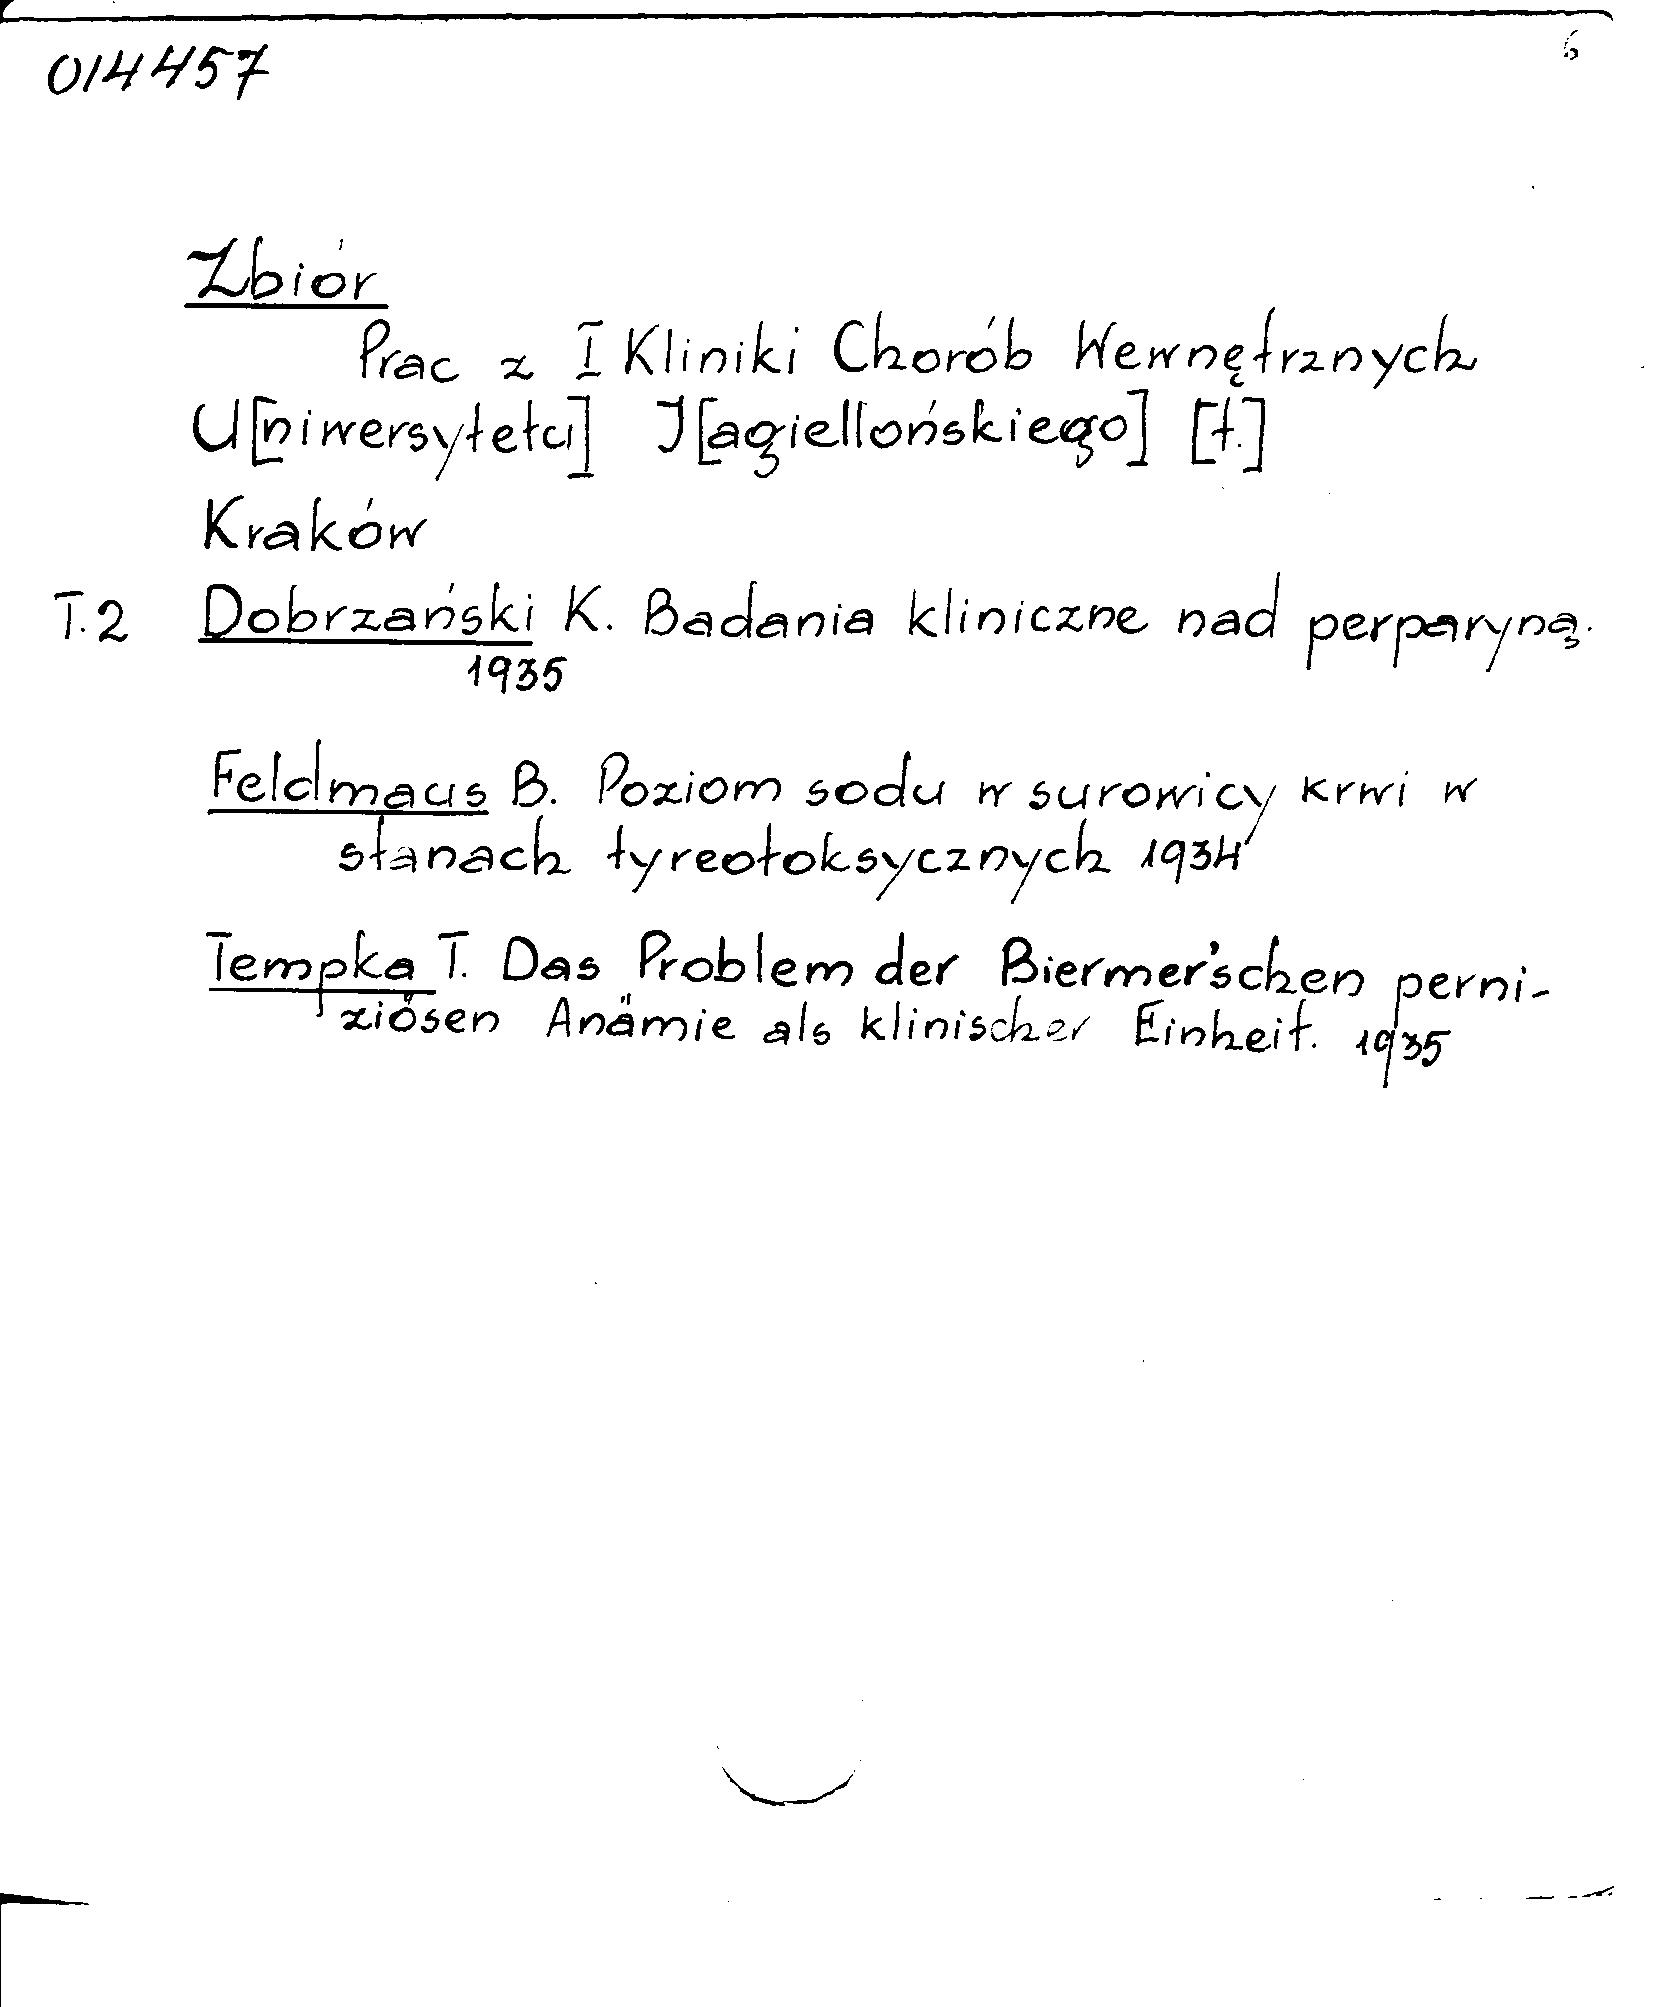 014457
6
Zbiór
Prac z I Kliniki Chorób Wewnętrznych
U[niwersytetu] J[agiellońskiego] [t.]
Kraków
T.2 Dobrzański K. Badania kliniczne nad perparyną.
1935
Feldmaus B. Poziom sodu w surowicy krwi w
stanach tyreotoksycznych 1934
Tempka T. Das Problem der Biermer'schen perni-
ziösen Anämie als klinischer Einheit. 1935